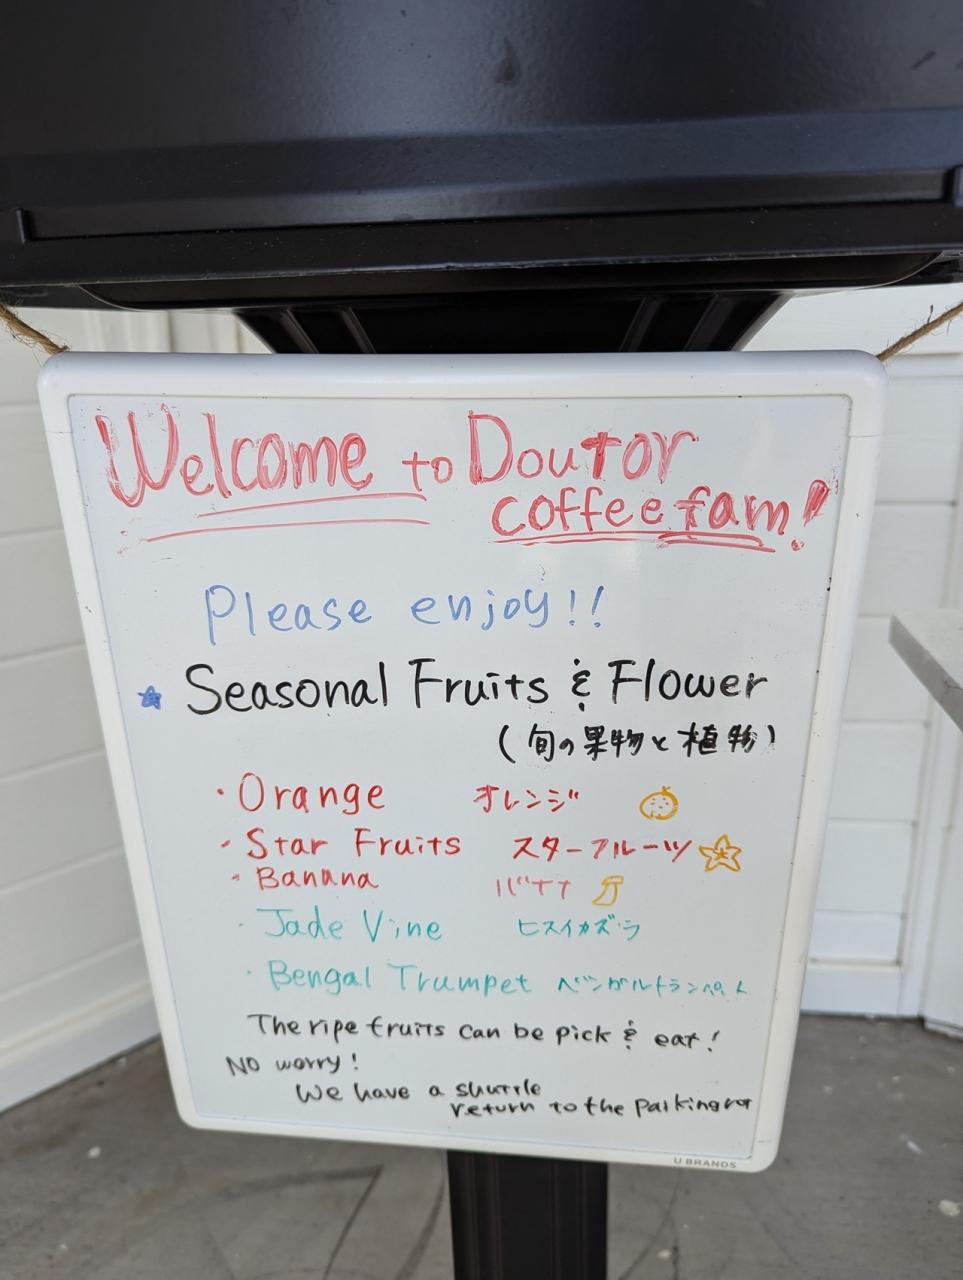 Welcome to Doutor
coffee fam!
Please enjoy!!
Seasonal Fruits & Flower
(旬の果物と植物)
・Orange オレンジ
・Star Fruits スターフルーツ
・Banana バナナ
・Jade Vine ヒスイカズラ
・Bengal Trumpet ベンガルトランペット
The ripe fruits can be pick & eat!
No worry!
We have a shuttle
return to the parking rot
U BRANDS